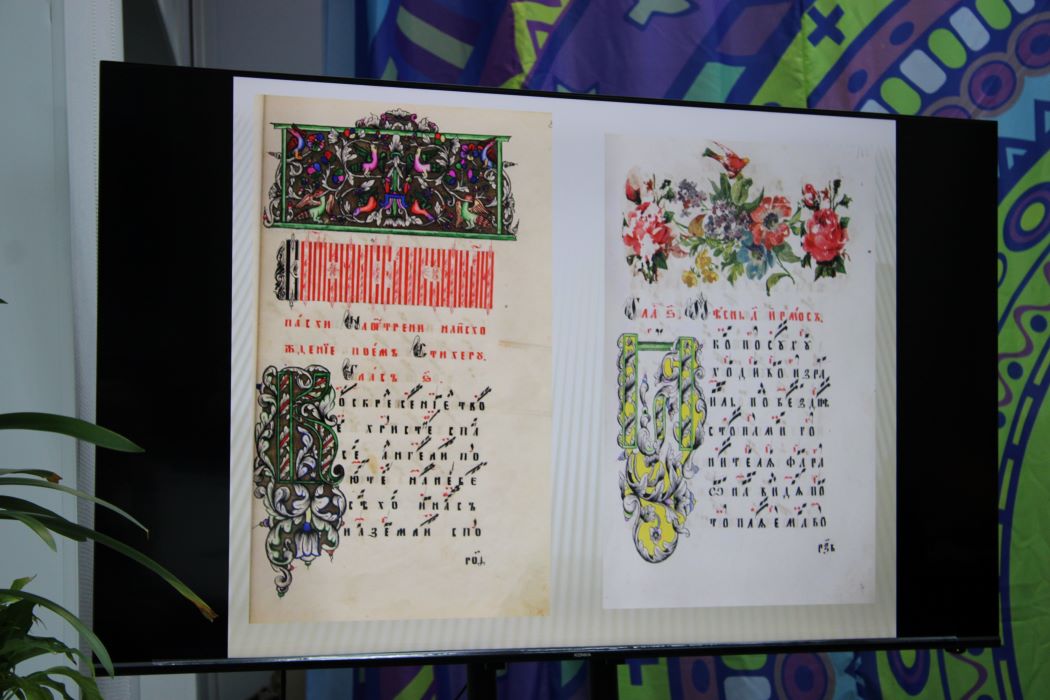 ПА́СХИ НАОУТРЕНИ МА́ЙСХО
ЖДЕ́НІЕ ПОЕ́МЪ СТИХЕРУ.
ГЛА́СЪ Ѕ҃.
ВОСКРЕСЕНІЕ ТВО
Е ХРИСТЕ СПА
СЕ АНГЕЛИ ПО
ЮТЕ НАНЕБЕ
СѢХО ИНАСЪ
НАЗЕМЛИ СПО
ГЛА Ѕ҃. ПѢСНЬ А҃ ИРМОСЪ.
ИКО ПОСУХУ
ХОДИВО ИЗРА
ИЛЬ ПО БЕЗДНѢ
СТОПАМИ ГО
НИТЕЛѦ ФАРА
ѠНА ВИДѦ ПО
ТОПЛѦЕМА ВО